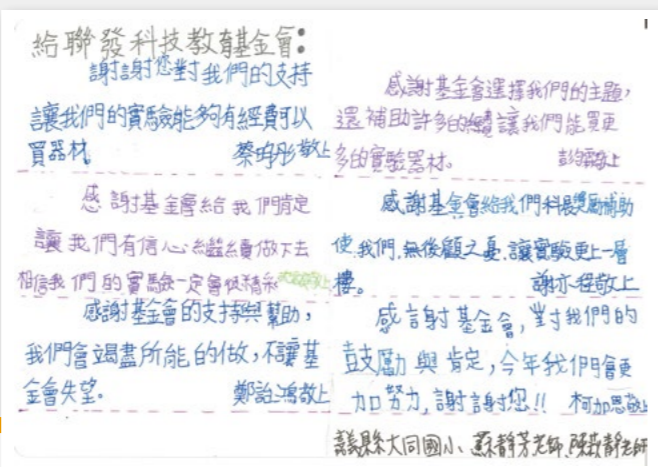 給聯發科技教育基金會：
謝謝您對我們的支持
讓我們的實驗能夠有經費可以
買器材。 敬上
感謝基金會給我們肯定
讓我們有信心繼續做下去
相信我們的實驗一定會很精彩
感謝基金會的支持與幫助，
我們會竭盡所能的做，不讓基
金會失望。 鄭詒鴻敬上
感謝基金會選擇我們的主題，
還補助許多的 讓我們能買更
多的實驗器材。 敬上
感謝基金會給我們科展獎勵補助
使我們，無後顧之憂，讓實驗更上一層
樓。 謝亦程敬上
感謝基金會，對我們的
鼓勵與肯定，今年我們會更
加努力，謝謝您!! 柯加恩敬上
義縣大同國小、蘇靜芳老師、陳 靜老師